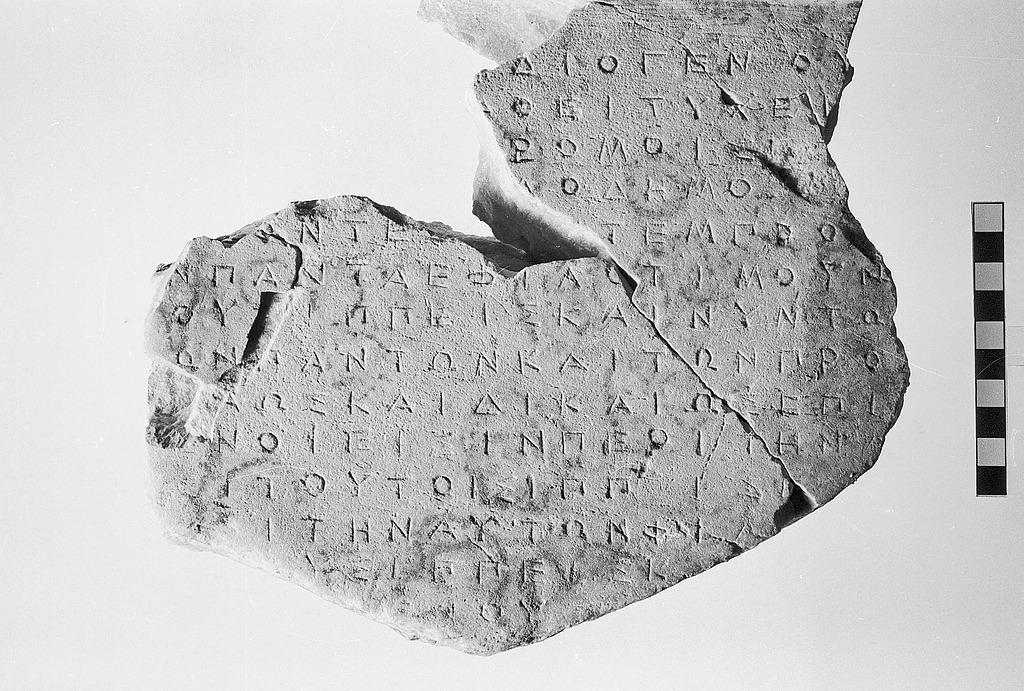 ΔΙΟΓΕΝΟ
ΘΕΙΤΥΧΕΙ
ΡΟΜΟΙΣΙ
ΛΟΔΗΜΟ
ΑΝΤΕ ΤΕΜΠΡΟ
ΝΠΑΝΤΑΕΦ ΑΟΤΙΜΟΥΝ
ΟΥ ΙΠΠΕΙΣΚΑΙΝΥΝΤΩ
ΩΝΠΑΝΤΩΝΚΑΙΤΩΝΠΡΟ
ΛΩΣΚΑΙΔΙΚΑΙΩΣΕΠΙ
ΝΟΙΕΙΣΙΝΠΕΡΙΤΗΝ
ΙΤΟΥΤΟΙΣΙΠΠ ΙΣ
ΙΤΗΝΑΥΤΩΝΦΙΛ
ΑΣΙΕΠΕΙ ΣΚ
ΙΟΥ